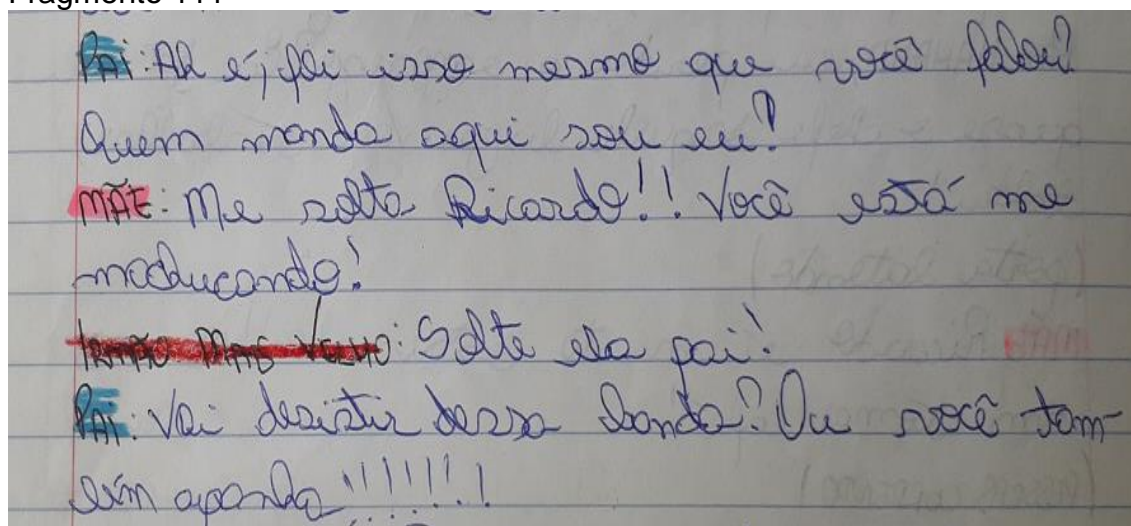 Fragmento 111
PAI: Ah é, foi isso mesmo que você falou?
Quem manda aqui sou eu!
MÃE: Me solta Ricardo!! Você está me
machucando!
IRMÃO MAIS VELHO: Solte ela pai!
PAI: Vai desistir dessa banda? Ou você tam-
bém apanha!!!!!!!